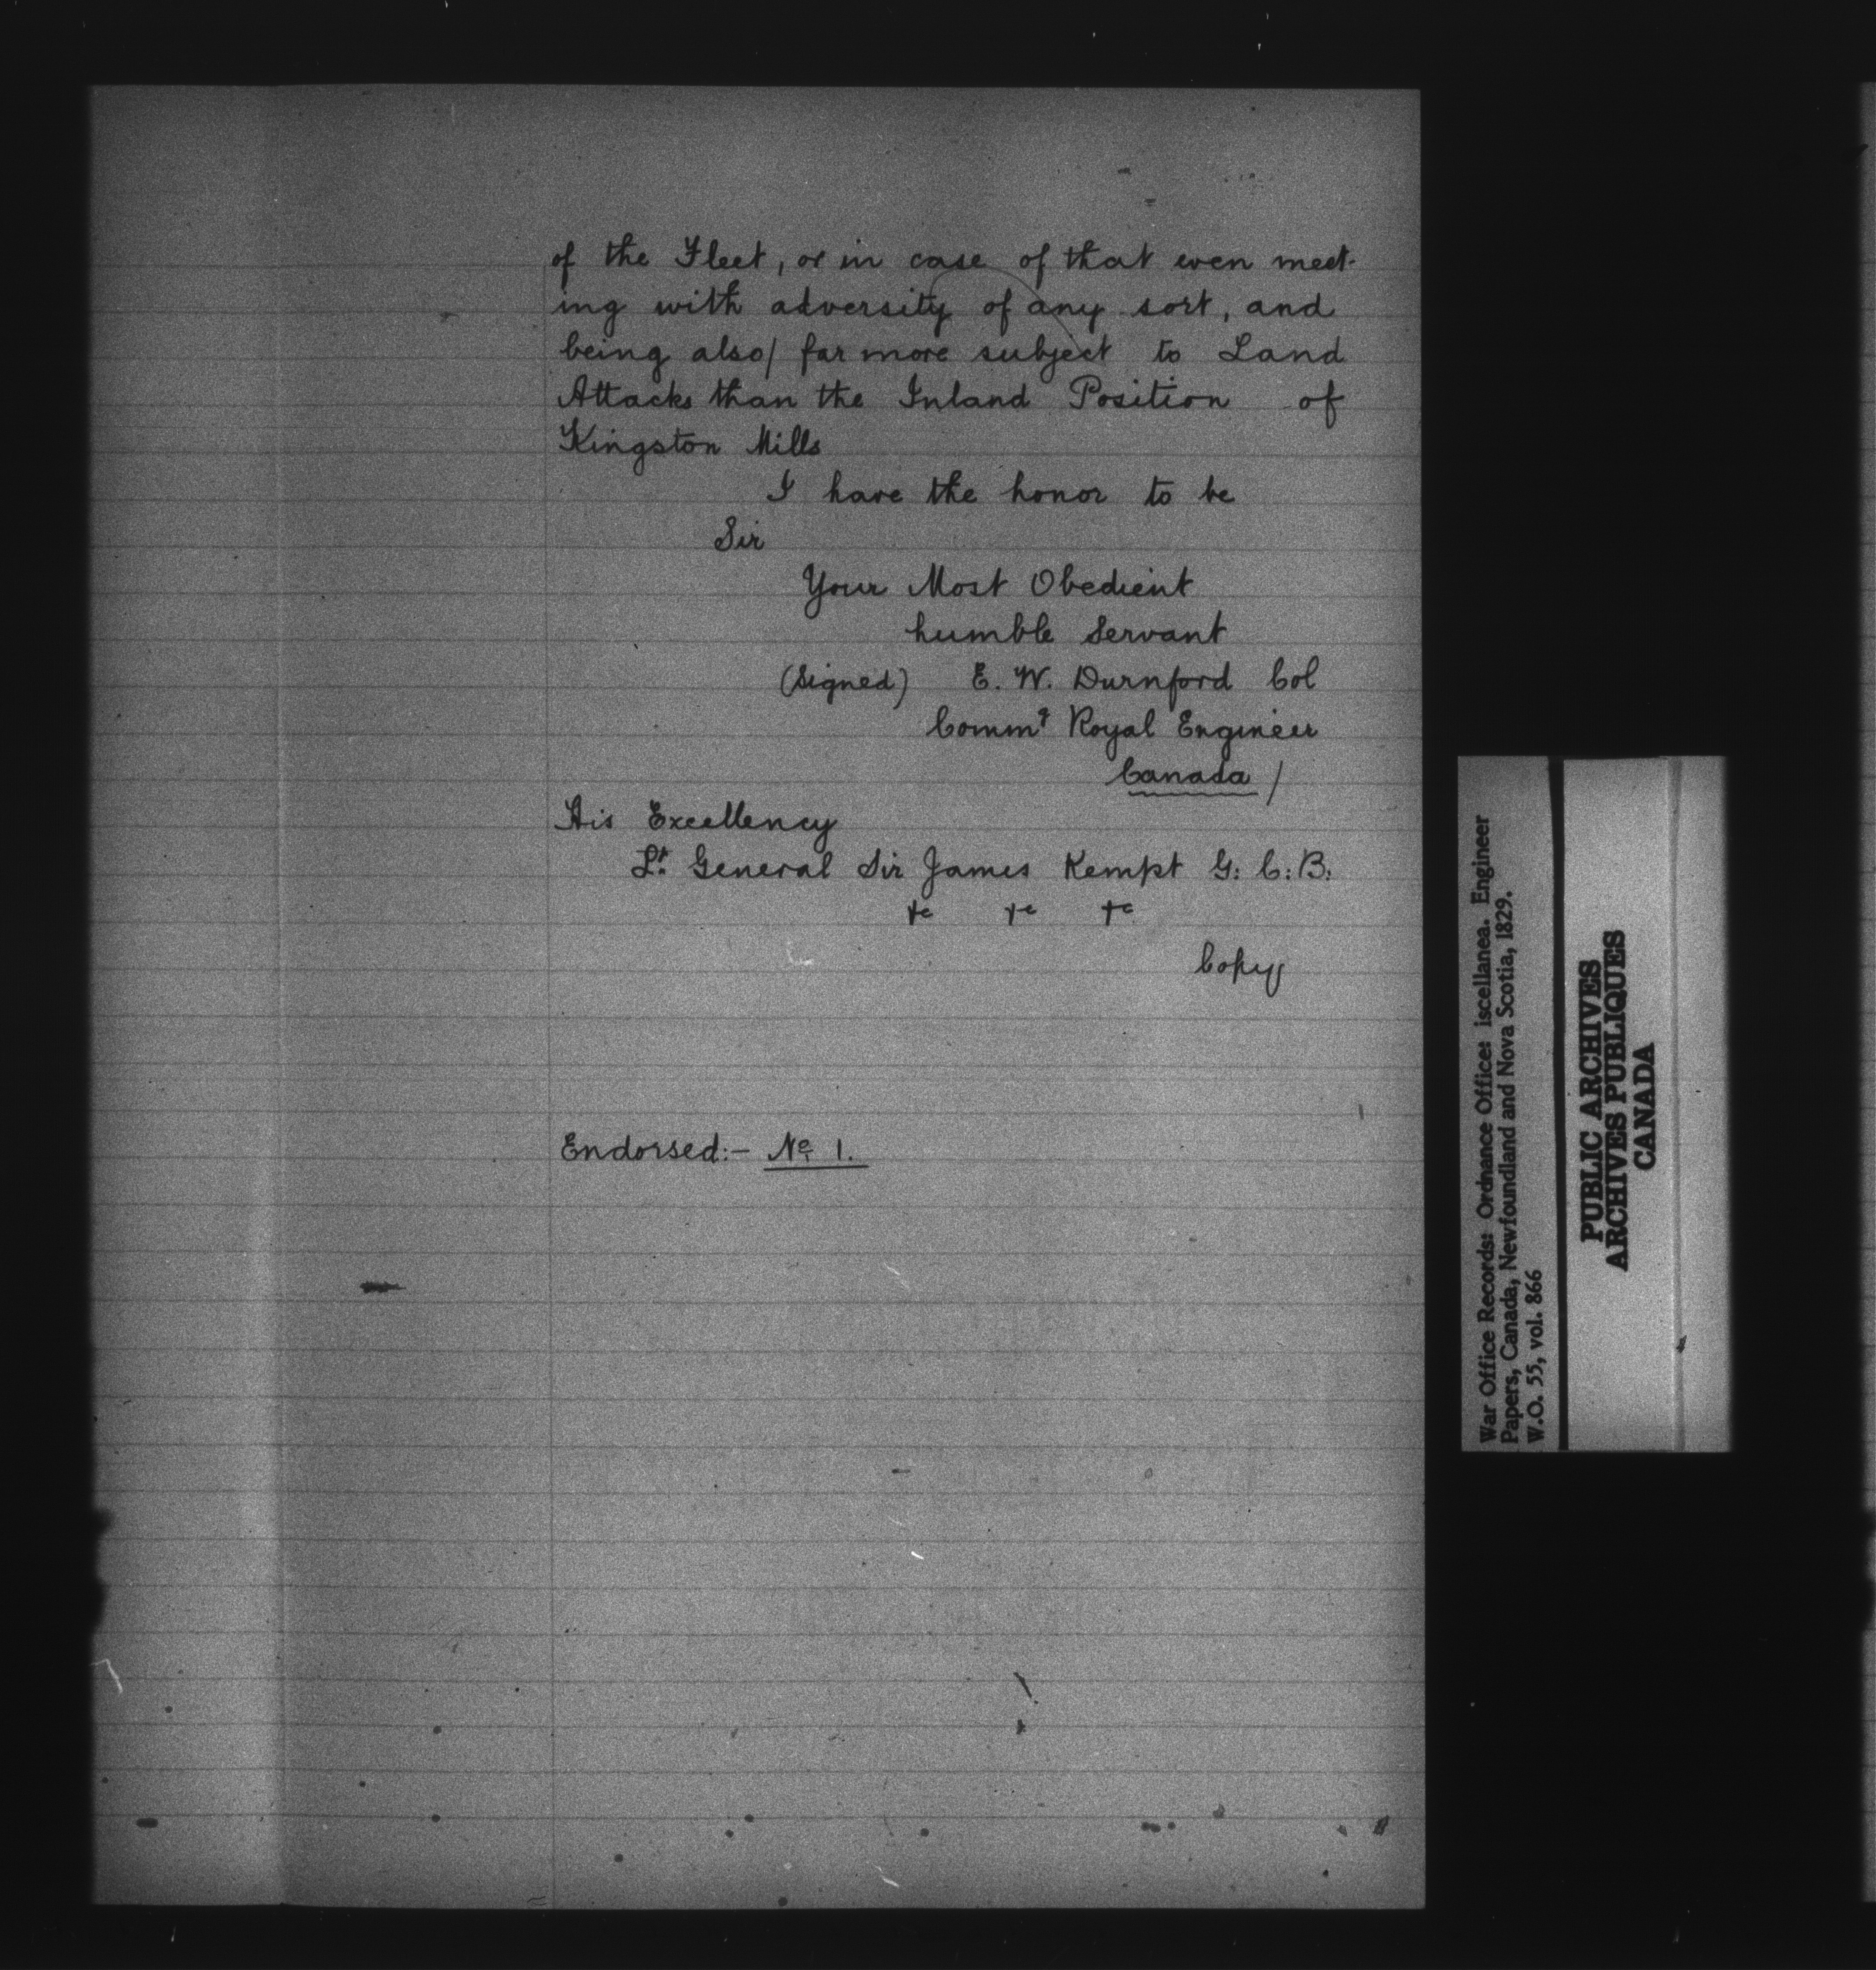 of the Fleet, or in case of that even meet-
ing with adversity of any sort, and
being also/ far more subject to Land
Attacks than the Inland Position of
Kingston Mills
I have the honor to be
Sir
Your Most Obedient
humble Servant
(Signed) E. W. Durnford Col
Commg Royal Engineer
Canada /
His Excellency
Lt General Sir James Kempt G: C: B:
&c &c &c
Copy
Endorsed:- No 1.
War Office Records: Ordnance Office: iscellanea. Engineer
Papers, Canada, Newfoundland and Nova Scotia, 1829.
W.O. 55, vol. 866
PUBLIC ARCHIVES
ARCHIVES PUBLIQUES
CANADA